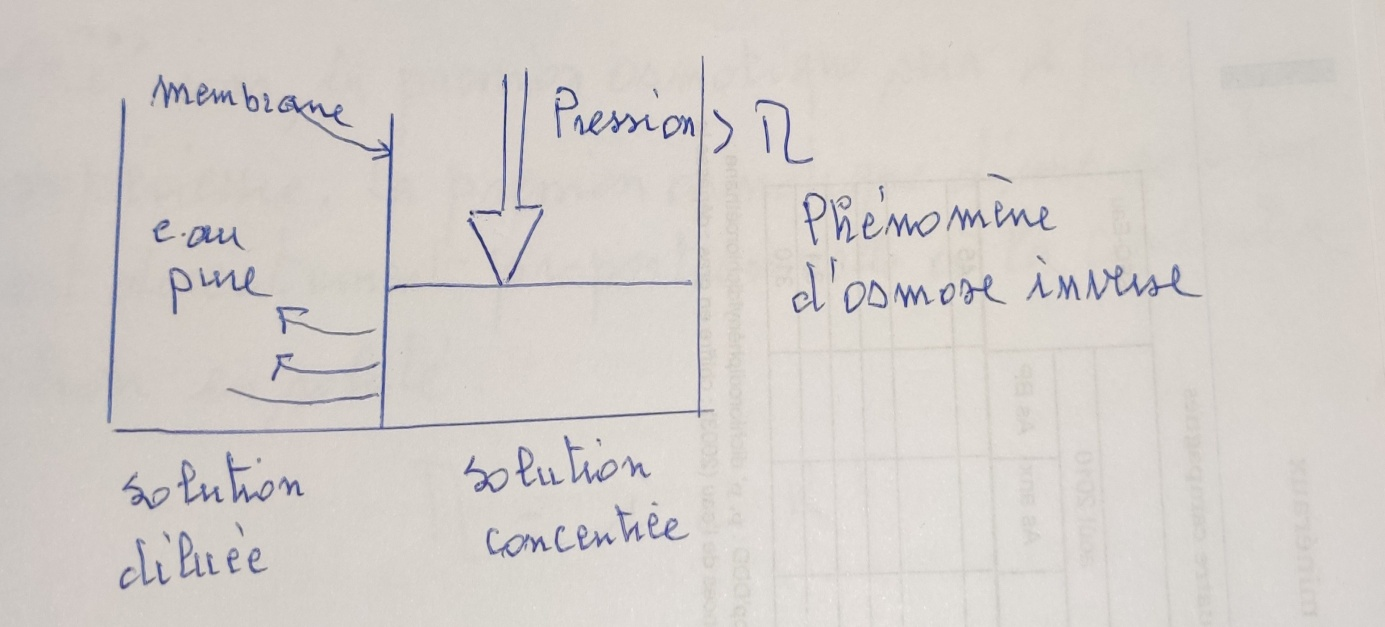 membrane
Pression > π
eau
pure
Phénomène
d'osmose inverse
solution
diluée
solution
concentrée